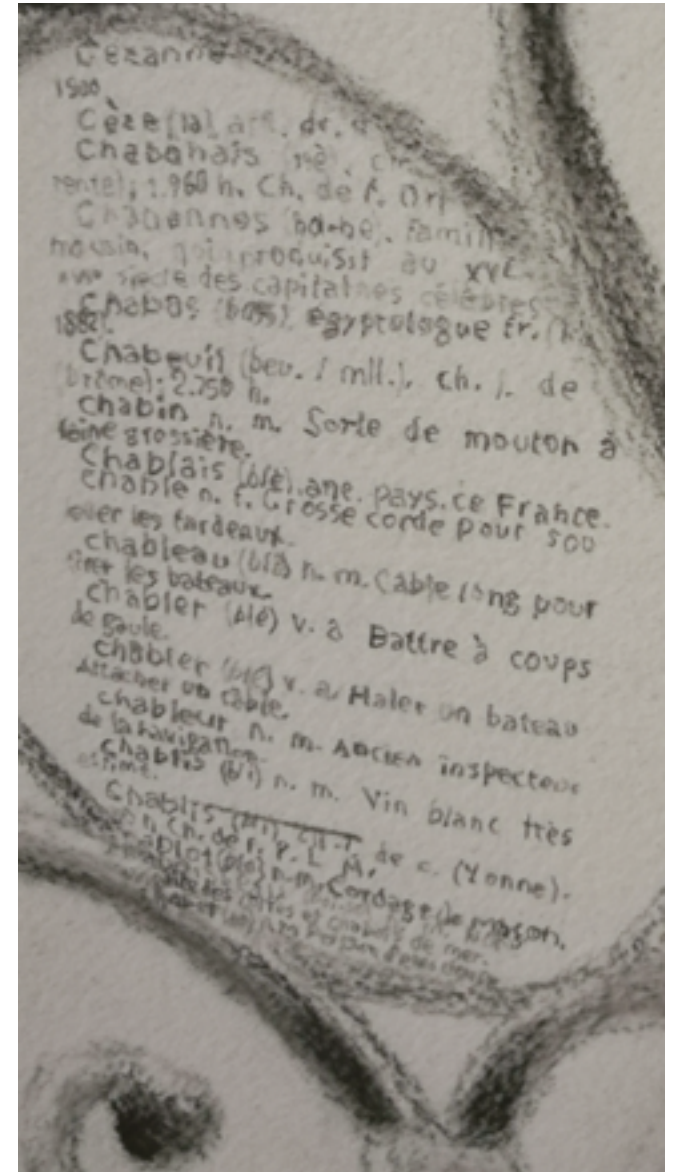 Cézanne
1900.
Cèze (la), aff. de
Chabanais (nè), ch.
rente); 1.960 h. Ch. de f. Orl
Chabannes (ba-ne), famill
mousin, qui produisit au XVe
XVIe siècle des capitaines célèbres
Chabas (bass), égyptologue fr.
1882.
Chabeuil (beu, l mll.), ch. l. de
(Drôme); 2.750 h.
chabin n. m. Sorte de mouton à
laine grossière.
Chablais (blè), anc. pays. ce France.
chable n. f. Grosse corde pour sou
ever les fardeaux.
chableau (blô) n. m. Câble long pour
tirer les bateaux.
chabler (blé) v. a Battre à coups
de gaule.
chabler (blé) v. a. Haler un bateau
Attacher un câble.
chableur n. m. Ancien inspecteur
de la navigation.
chablis (bli) n. m. Vin blanc très
estimé.
Chablis (bli), ch.-l. de c. (Yonne).
Ch. de f. P. L. M.
(blo) n. m. Cordage de maçon.
des côtes et de mer.